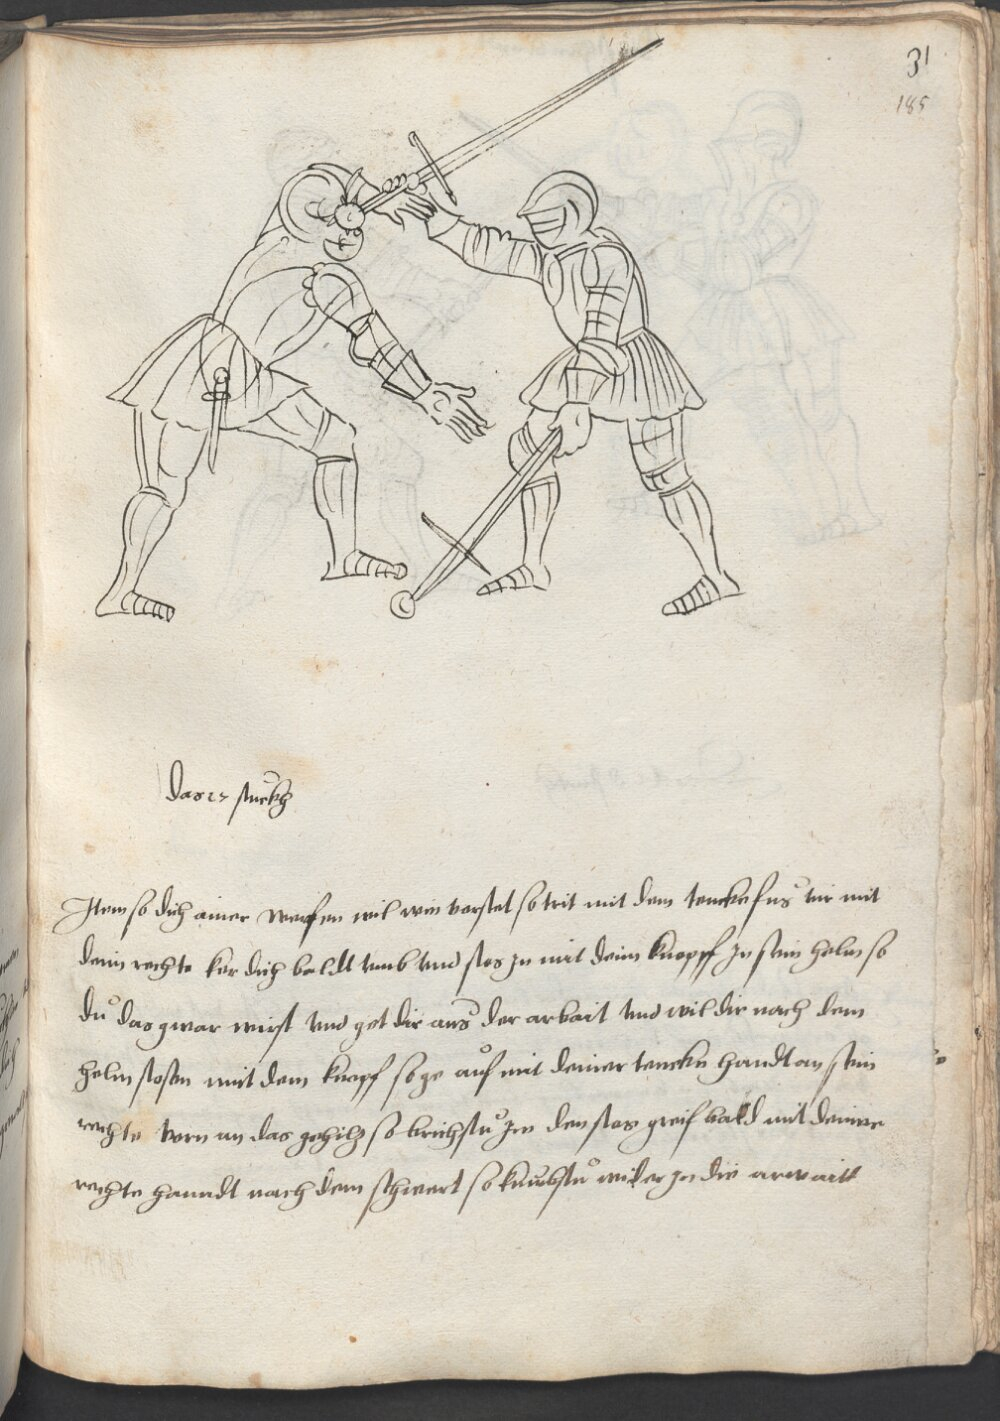 31
185
das 17 stuckh
Item so dich ainer werfen wil wie vorstet so trit mit dem tencke fuͦs fuͤr mit
dem rechte ker dich baldt vmb vnd stos zu mit deim knopff zu sein helm so
duͦ das gwar wirst vnd get dir auͦs der arbait vnd wil dir nach dem
helm stosen mit dem knopf so ge auͦf mit deiner tencke handt an sein
rechte vorn an das gehilz so brichstuͦ Im den stos greif bald mit deiner
rechte hanndt nach dem schwert so kuͦmbstuͦ wider zu die arwaitt